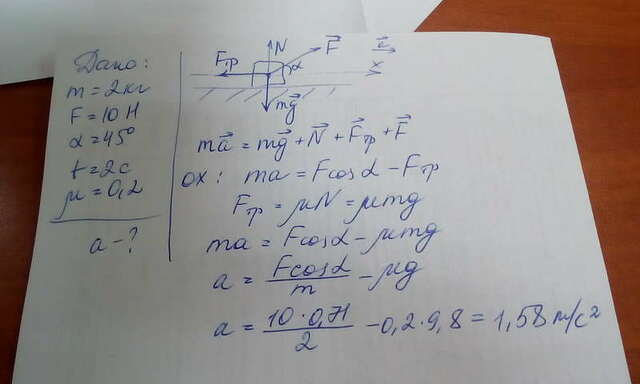 Дано:
m = 2кг
F = 10 Н
α = 45°
t = 2с
μ = 0,2
a - ?
N
F⃗
a⃗
Fтр
α
x
mg⃗
ma⃗ = mg⃗ + N⃗ + F⃗тр + F⃗
ox: ma = Fcosα - Fтр
Fтр = μN = μmg
ma = Fcosα - μmg
a = Fcosα/m - μg
a = 10·0,71/2 - 0,2·9,8 = 1,58 м/с²